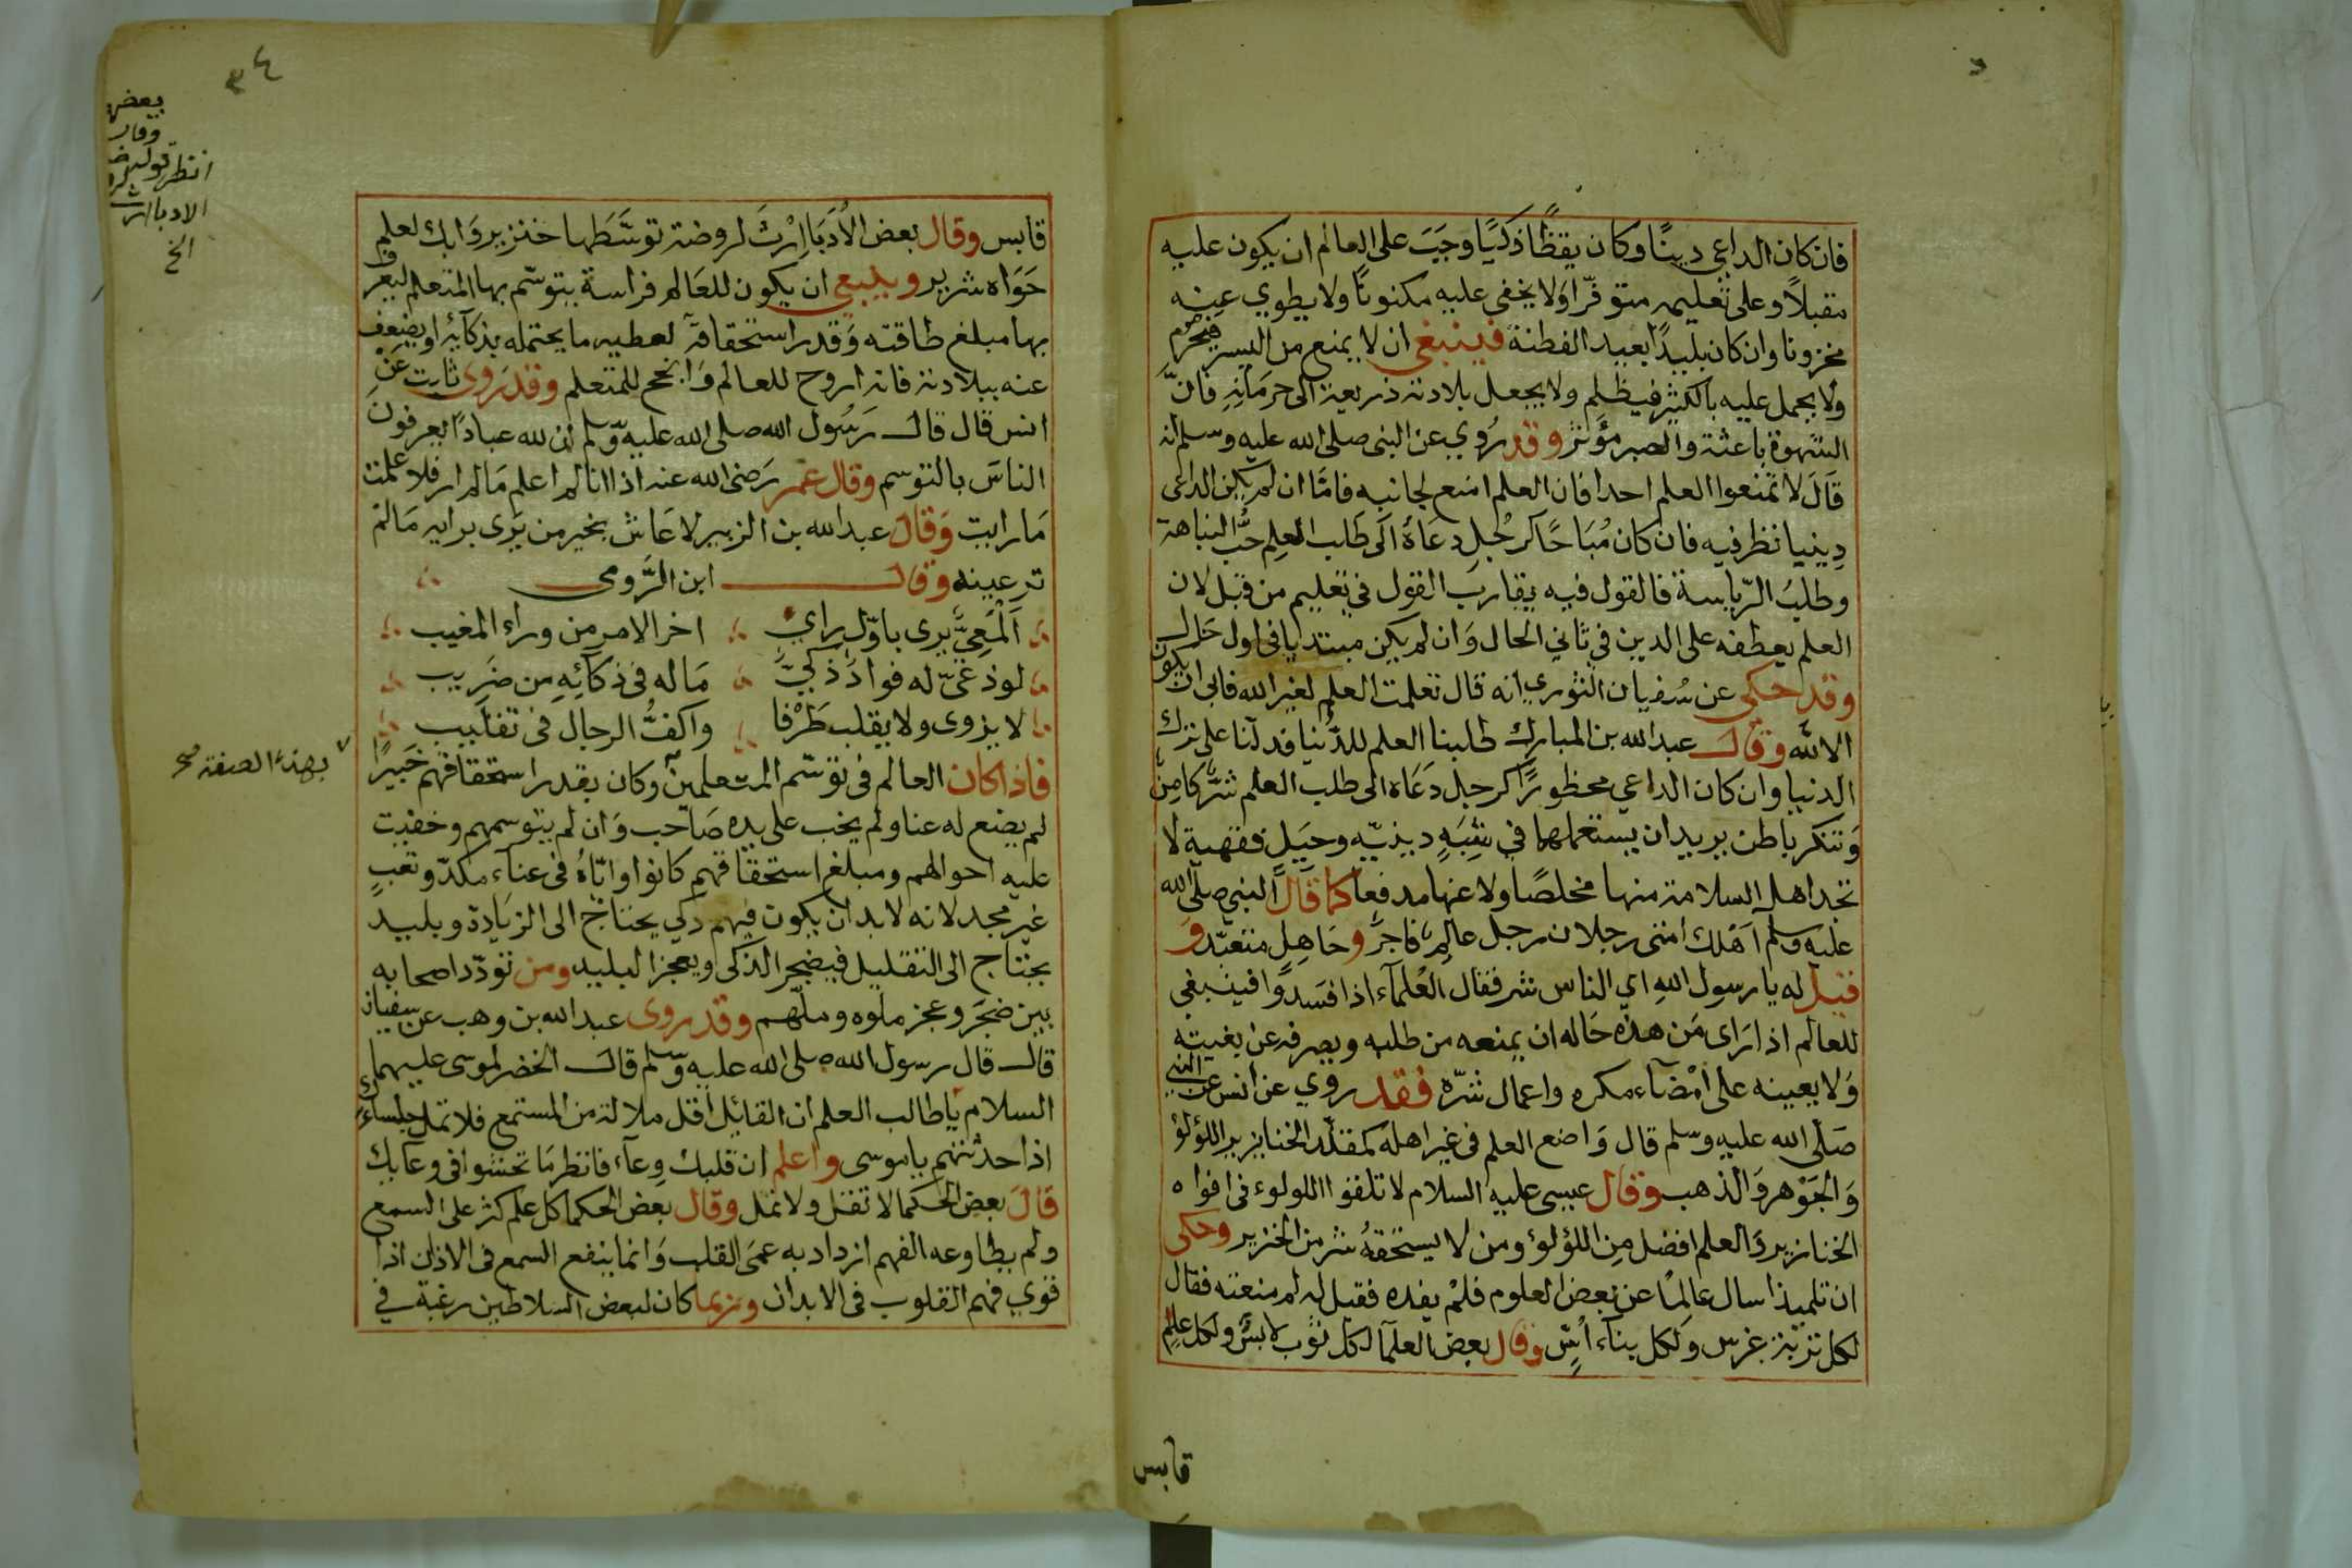 فان كان الداعي دينًا وكان يقظًا ذكيًا وجب على العالم ان يكون عليه
مقبلاً وعلى تعليمه متوفّرا ولا يخفى عليه مكنونًا ولا يطوي عنه
مخزونا وان كان بليدًا بعيد الفطنة فينبغي ان لا يمنع من اليسير فيحرم
ولا يحمل عليه بالكثير فيظلم ولا يجعل بلادته ذريعة الى حرمانه فانّ
الشهوة باعثة والصبر مؤثر وقد رُوي عن النبي صلى الله عليه وسلم انه
قال لا تمنعوا العلم احدا فان العلم امنع لجانبه فامّا ان لم يكن الداعي
دينيا نظر فيه فان كان مُبَاحًا كرجُلٍ دعاهُ الى طلب العلم حبُّ النباهة
وطلبُ الرّياسة فالقول فيه يقارب القول في تعليم من قبل لان
العلم يعطفه على الدين في ثاني الحال وان لم يكن مبتديا في اول حال
وقد حكى عن سُفيان الثوري انه قال تعلمت العلم لغير الله فابى ان يكون
الا لله وقال عبد الله بن المبارك طلبنا العلم للدُّنيا فدلنا على ترك
الدنيا وان كان الداعي محظورًا كرجل دعاه الى طلب العلم شرٌّ كامن
ومكر باطن يريد ان يستعملهما في شبهٍ دينيّه وحيل فقهية لا
تجد اهل السلامة منها مخلصًا ولا عنها مدفعا كما قال النبي صلى الله
عليه وسلم اهلك امتي رجلان رجل عالم فاجرٌ وجاهل متعبّد و
قيل له يا رسول الله اي الناس شر فقال العُلمآء اذا فسدوا فينبغي
للعالم اذا راى من هذه حاله ان يمنعه من طلبه ويصرفه عن بغيته
ولا يعينه على امضآء مكره واعمال شرّه فقد روي عن انس عن النبي
صلى الله عليه وسلم قال واضع العلم في غير اهله كمقلّد الخنازير اللؤلؤ
والجوهر والذهب وقال عيسى عليه السلام لا تلقوا اللولوء في افواه
الخنازير والعلم افضل من اللؤلؤ ومن لا يستحقهُ شر من الخنزير وحكى
ان تلميذا سال عالمًا عن بعض العلوم فلم يفده فقيل له لم منعته فقال
لكل تربة غرس ولكل بناء اسّ وقال بعض العلمآ لكل ثوب لابسٌ ولكل علم
قابس
٣٤
بعض
وقال
انظر قوله
الادبا ارث
الخ
قابس وقال بعض الأُدبَا اِرْثَ لروضة توسَّطها خنزير وابك لعلم
حواه شرير وينبغي ان يكون للعالم فراسة يتوسّم بها المتعلم ليعرف
بها مبلغ طاقته وقدر استحقاقه لعطيه ما يحتمله بذكآئه او يضعف
عنه ببلادته فانه اروح للعالم وانجح للمتعلم وقد روى ثابت عن
انس قال قال رسُول الله صلى الله عليه وسلم ان لله عبادًا يعرفون
الناس بالتوسم وقال عمر رضي الله عنه اذا انا لم اعلم ما لم ار فلا علمت
ما رايت وقال عبد الله بن الزبير لا عاش بخير من يرى برايه ما لم
تر عينه وقال ابن الرّومي
اَلْمَعِيٌّ يرى باوّل راي اخر الامر من وراء المغيب
لوذعيّ له فواد ذكيّ ما له في ذكائه من ضريب
لا يزوى ولا يقلب طَرْفا واكفُّ الرجال في تقليب
فاذا كان العالم في توسّم المتعلمين وكان بقدر استحقاقهم خبيرًا
بهذه الصفة صح
لم يضع له عنا ولم يخب على يده صاحب وان لم يتوسمهم وخفيت
عليه احوالهم ومبلغ استحقاقهم كانوا وايّاهُ في عناء مكدّ وتعب
غير مجد لانه لابد ان يكون فيهم ذكي يحتاج الى الزيادة وبليد
يحتاج الى التقليل فيضجر الذكي ويعجز البليد ومن تودّد اصحابه
بين ضجر وعجز ملوه وملّهم وقد روى عبد الله بن وهب عن سفيان
قال قال رسول الله صلى الله عليه وسلم قال الخضر لموسى عليهما
السلام يا طالب العلم ان القائل اقل ملالة من المستمع فلا تمل جلساءك
اذا حدّثتهم يا موسى واعلم ان قلبك وعآء فانظر ما تحشوا في وعآيك
قال بعض الحكما لا تقل ولا تمل وقال بعض الحكما كل علم كثر على السمع
ولم يطاوعه الفهم ازداد به عمى القلب وانما ينفع السمع في الاذان اذا
قوي فهم القلوب في الابدان وربما كان لبعض السلاطين رغبة في